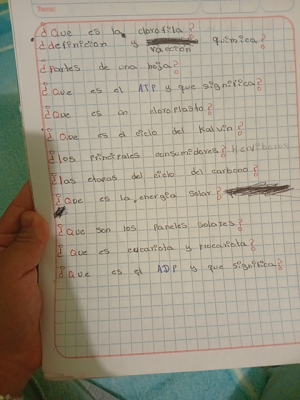 Tema:
¿Que es la clorofila?
¿definicion y química?
vaccion
¿Partes de una hoja?
¿Que es el ATP y que significa?
¿Que es un cloroplasto?
¿Que es el ciclo del Kalvin?
¿los Principales consumidores?
¿las etapas del ciclo del carbono?
¿Que es la energia solar?
¿Que son los Paneles solares?
¿Que es eucariota y procariota?
¿Que es el ADP y que significa?